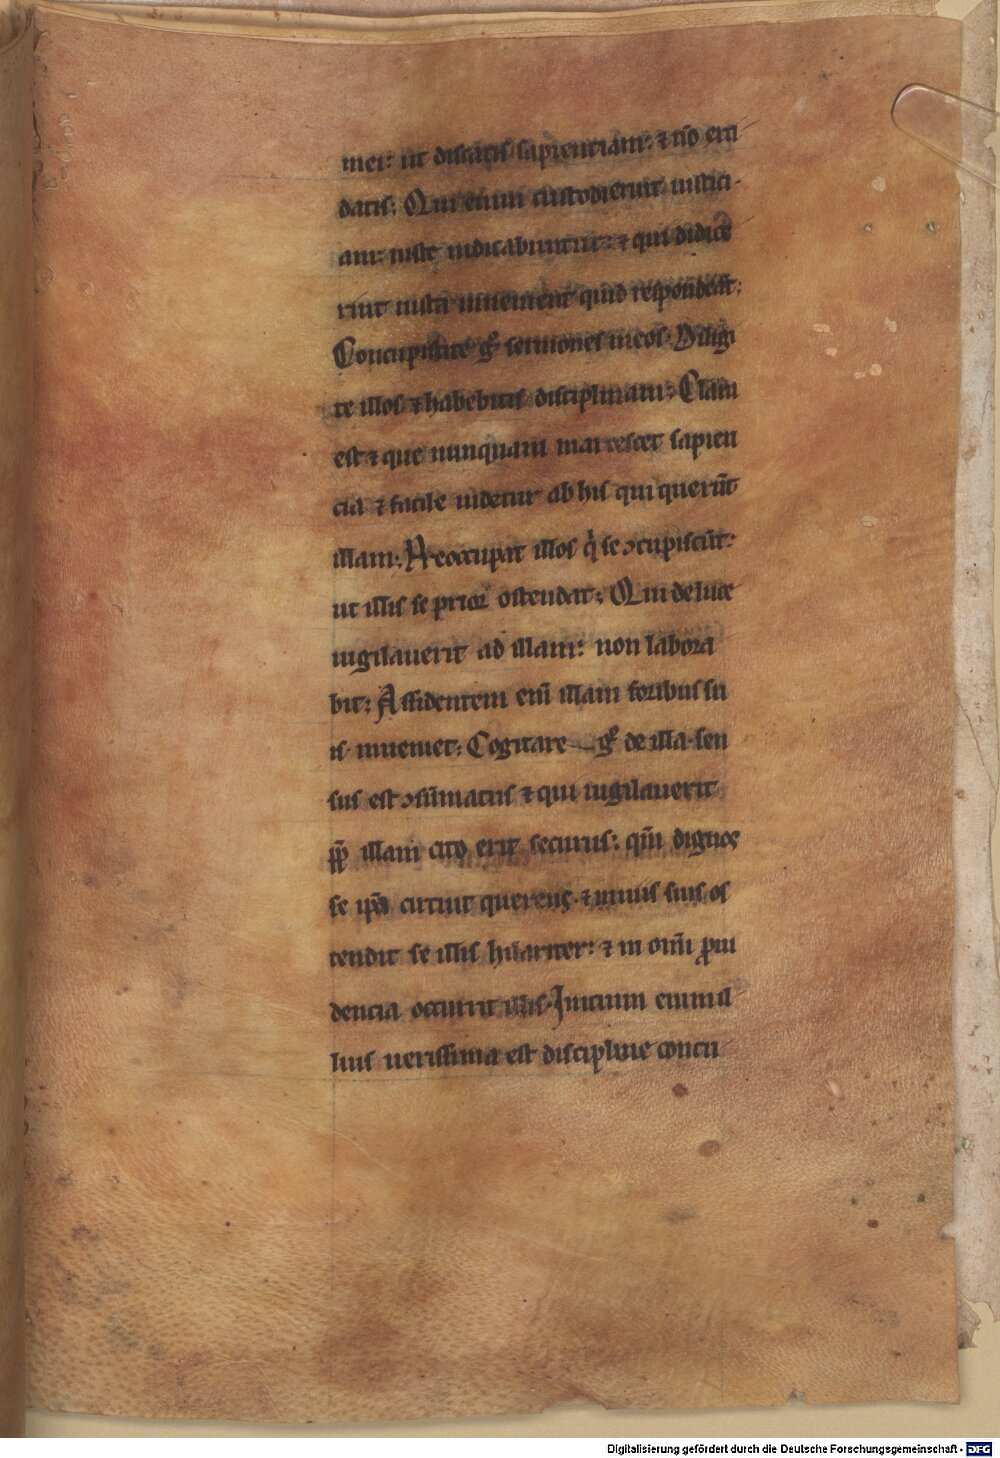 mei: ut discatis sapientiam: ⁊ nō exci
datis: Qui enim custodierint iustici-
am: iuste iudicabuntur: ⁊ qui didice
rint iusta inuenient quid respondeāt:
Concupiscite gͦ sermones meos· Diligi
te illos ⁊ habebitis disciplinam: Clara
est ⁊ que nunquam marcescet sapien
cia ⁊ facile uidetur ab his qui querūt
illam: Preoccupat illos qͥ se ꝯcupiscūt:
ut illis se prior ostendat: Qui de luce
uigilauerit ad illam: non labora
bit: Assidentem enī illam foribus su
is inueniet: Cogitare gͦ de illa· sen
sus est ꝯsūmatus ⁊ qui uigilauerit
ꝓpt̄ illam cito erit securus: qm̄ dignos
se ip̄a circuit querens· ⁊ in uiis suis os
tendit se illis hilariter: ⁊ in omī ꝓui
dencia occurrit illis· Inicium enim il
lius uerissima est discipline concu
Digitalisierung gefördert durch die Deutsche Forschungsgemeinschaft - DFG